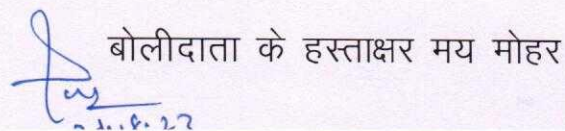 बोलीदाता के हस्ताक्षर मय मोहर